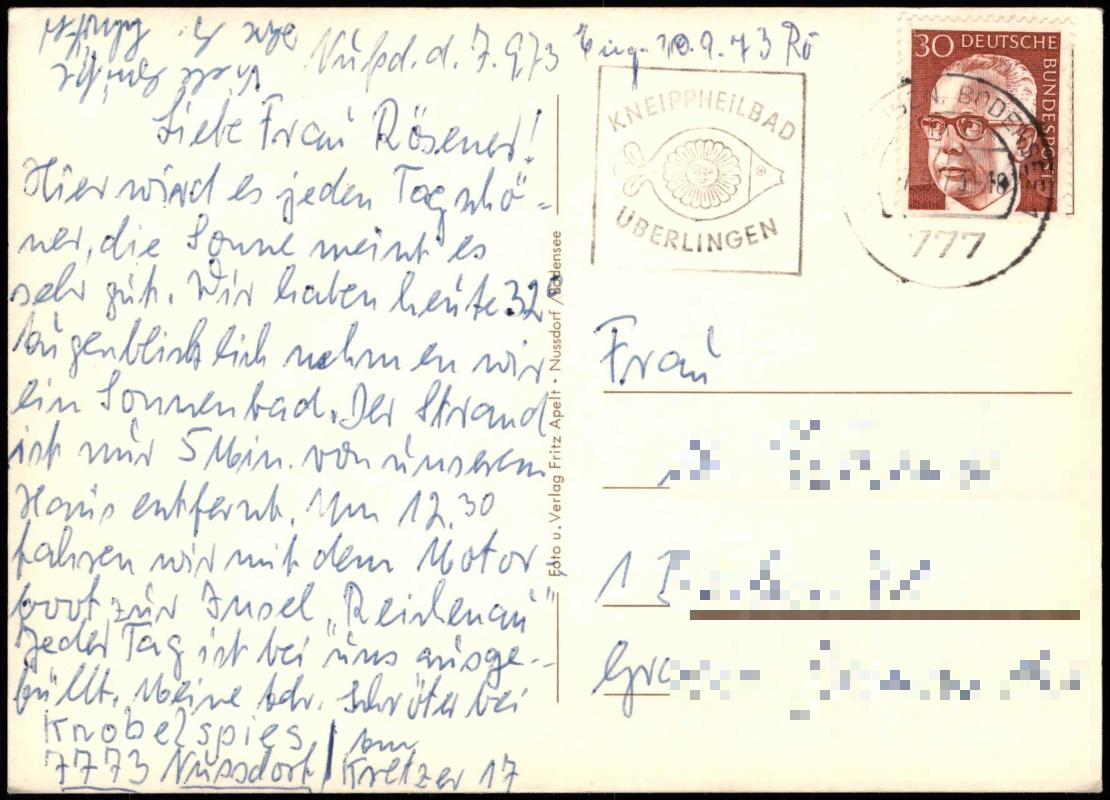 Nußd. d. 7.9.73
Eing. 10.9.73 Rö
Liebe Frau Rösener!
Hier wird es jeden Tag schö-
ner, die Sonne meint es
sehr gut. Wir haben heute 32°
Augenblicklich nehmen wir
ein Sonnenbad. Der Strand
ist nur 5 Min. von unserem
Haus entfernt. Um 12.30
fahren wir mit dem Motor-
boot zur Insel „Reichenau"
Jeder Tag ist bei uns ausge-
füllt. Meine Adr. Schröter bei
Knobelspies / am
7773 Nussdorf / Kretzer 17
Foto u. Verlag Fritz Apelt • Nussdorf/Bodensee
KNEIPPHEILBAD
ÜBERLINGEN
30 DEUTSCHE
BUNDESPOST
BODENSEE
777
Frau
1